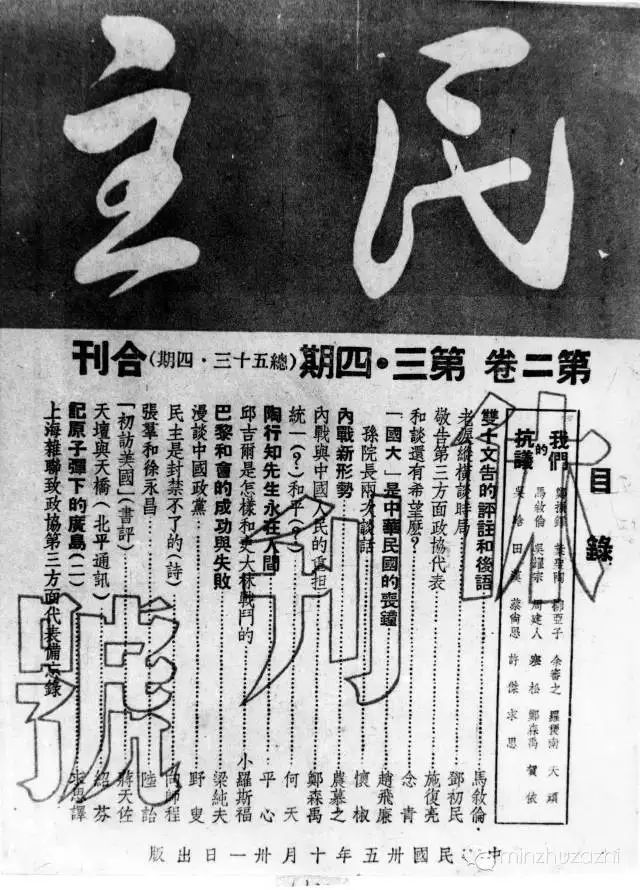 民主
第二卷 第三·四期(總五十三·四期)合刊
目錄
我們的抗議
鄭振鐸 葉聖陶 柳亞子 余審之 羅稷南 天頑
馬敘倫 吳耀宗 周建人 松 鄭森禹 賀依
吳晗 田漢 許傑 求思
雙十文告的評註和後語……馬敘倫
縱橫談時局……鄧初民
敬告第三方面政協代表……施復亮
和談還有希望麽?……念青
「國大」是中華民國的喪鐘……趙飛廉
孫院長兩次談話……懷椒
內戰新形勢……農慕之
內戰與中國人民的重担……鄭森禹
統一(?)和平(?)……何天
陶行知先生永在人間……平心
邱吉爾是怎樣和史大林戰鬥的……小羅斯福
巴黎和會的成功與失敗……梁純夫
漫談中國政黨……野叟
民主是封禁不了的(詩)……向師程
張羣和徐永昌……陸詒
「初訪美國」(書評)……蔣天佐
天壇與天橋(北平通訊)……紹芬
記原子彈下的廣島(二)……求思譯
上海雜聯致政協第三方面代表備忘錄
休刊號
中華民國卅五年十月卅一日出版
minzhuzazhi